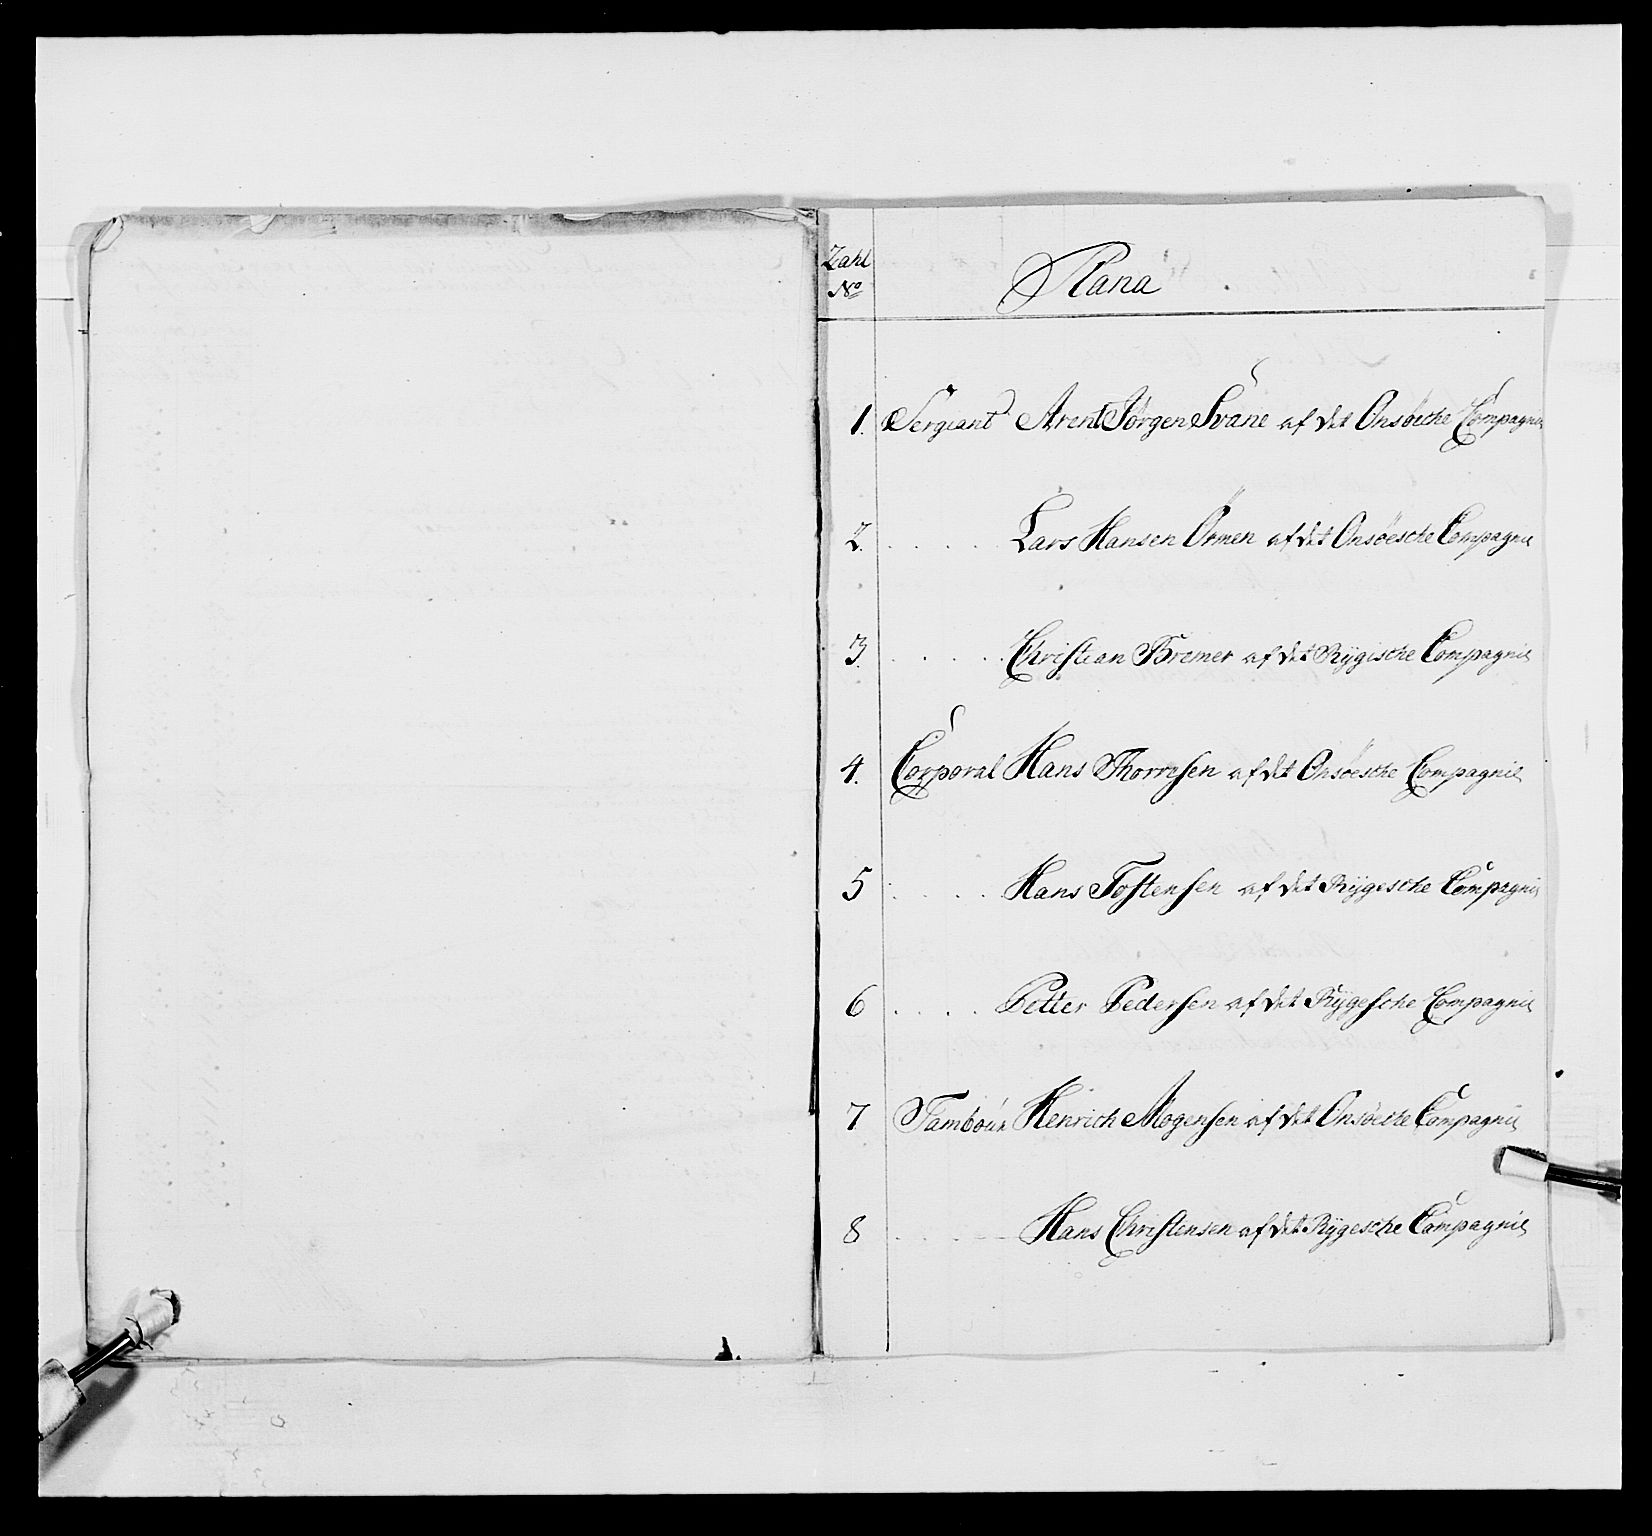 Zahl
No
1. Sergiant Arent Jørgen Svane af det Onsöeske Compagnie
2. . . . . . Lars Hansen Örmen af det Onsöesche Compagnie
3. . . . . . Christian Bremer af det Rÿgische Compagnie
4. Corporal Hans Thornsen af det Onsöesche Compagnie
5 . . . . . Hans Tostensen af det Rÿgesche Compagnie
6 . . . . Petter Pedersen af det Rÿgesche Compagnie
7 Tambour Henrich Mogensen af det Onsöeske Compagnie
8 . . . . . Hans Christensen af det Rÿgesche Compagnie